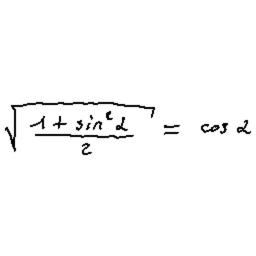 \sqrt{\frac{1 + \sin^2 \alpha}{2}} = \cos \alpha